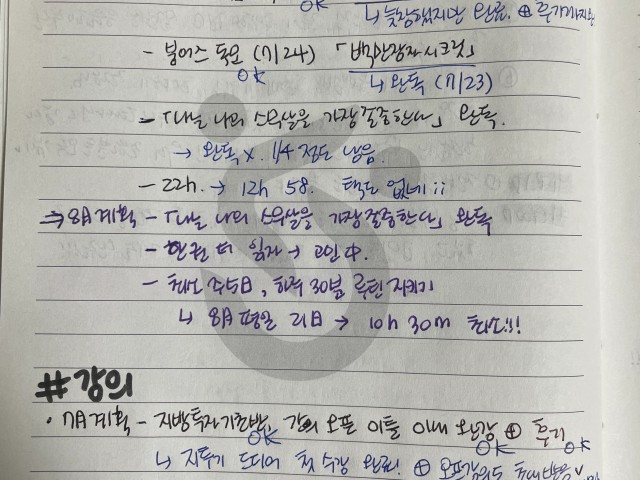 OK
↳ 늦장했지만 완료. ⊕ 후기까지
- 붕어스 독모 (7/24) 「백만장자 시크릿」
OK ↳ 완독 (7/23)
- 「나는 나의 스무살을 가장 존중한다」 완독.
→ 완독 x. 1/4 정도 남음.
- 22h. → 12h 58. 택도 없네;;
⇒ 8月 계획 - 「나는 나의 스무살을 가장 존중한다」 완독
- 한 권 더 읽자 → 고민中.
- 최소 주5日, 하루 30분 루틴 지키기
↳ 8月 평일 21日 → 10h 30m 최소!!!
# 강의
• 7月 계획 - 지방투자기초반, 강의 오픈 이틀 이내 완강 ⊕ 후기
OK OK OK
↳ 지투기 드디어 첫 수강 완료! ⊕ 오프강의도